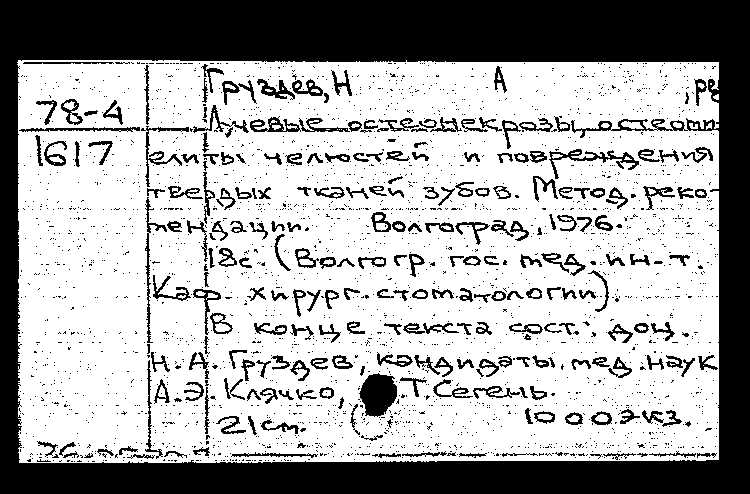 Груздев, Н А , ред
78-4
Лучевые остеонекрозы, остеоми-
1617
елиты челюстей и повреждения
твердых тканей зубов. Метод. реко-
мендации. Волгоград, 1976.
18с. (Волгогр. гос. мед. ин-т.
Каф. хирург. стоматологии).
В конце текста сост.: доц.
Н. А. Груздев, кандидаты мед. наук
А.Э. Клячко, .Т. Сегень.
21см. 1000экз.